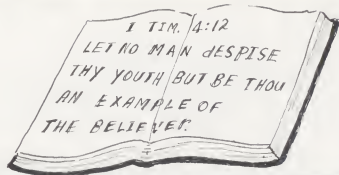 I TIM. 4:12
LET NO MAN dESPISE
THY YOUTH BUT BE THOU
AN EXAMPLE OF
THE BELIEVEr.